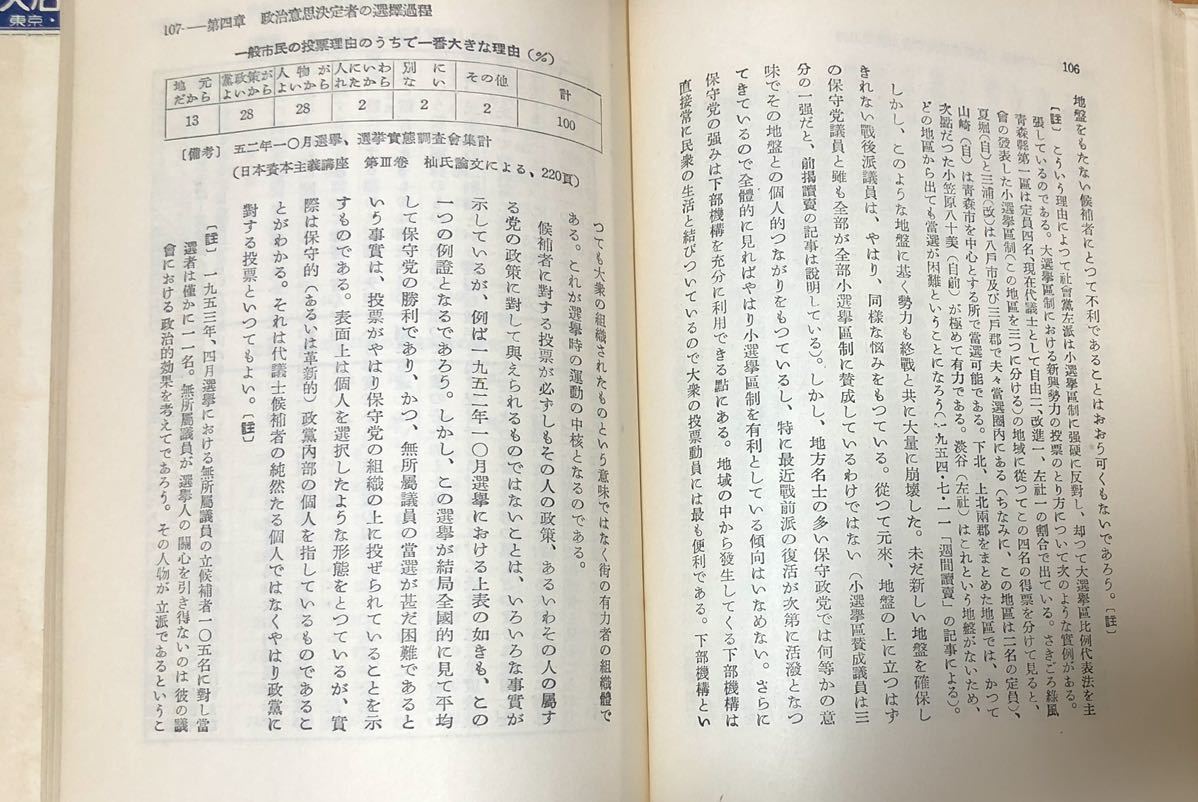 106
地盤をもたない候補者にとつて不利であることはおおう可くもないであろう。〔註〕
〔註〕 こういう理由によつて社會黨左派は小選擧區制に强硬に反對し、却つて大選擧區比例代表法を主
張しているのである。大選擧區制における新興勢力の投票のとり方について次のような實例がある。
青森縣第一區は定員四名、現在代議士として自由二、改進一、左社一の割合で出ている。さきごろ綠風
會の發表した小選擧區制（この地區を三つに分ける）の地域に從つてこの四名の得票を分けて見ると、
夏堀（自）と三浦（改）は八戶市及び三戶郡で夫々當選圈內にある（ちなみに、この地區は二名の定員）、
山崎（自）は青森市を中心とする所で當選可能である。下北、上北兩郡をまとめた地區では、かつて
次點だつた小笠原八十美（自前）が極めて有力である。淡谷（左社）はこれという地盤がないため、
どの地區から出ても當選が困難ということになろう（一九五四・七・一一「週間讀賣」の記事による）。
しかし、このような地盤に基く勢力も終戰と共に大量に崩壞した。未だ新しい地盤を確保し
きれない戰後派議員は、やはり、同樣な悩みをもつている。從つて元來、地盤の上に立つはず
の保守党議員と雖も全部が全部小選擧區制に賛成しているわけではない（小選擧區賛成議員は三
分の一强だと、前揭讀賣の記事は說明している）。しかし、地方名士の多い保守政党では何等かの意
味でその地盤との個人的つながりをもつているし、特に最近戰前派の復活が次第に活潑となつ
てきているので全體的に見ればやはり小選擧區制を有利としている傾向はいなめない。さらに
保守党の强みは下部機構を充分に利用できる點にある。地域の中から發生してくる下部機構は
直接常に民衆の生活と結びついているので大衆の投票動員には最も便利である。下部機構とい
107――第四章 政治意思決定者の選擇過程
一般市民の投票理由のうちで一番大きな理由（%）
地元だから 黨政策がよいから 人物がよいから 人にいわれたから 別にない その他 計
13 28 28 2 2 2 100
〔備考〕 五二年一〇月選擧、選擧實態調査會集計
（日本資本主義講座 第Ⅲ卷 杣氏論文による、220頁）
つても大衆の組織されたものという意味ではなく街の有力者の組織體で
ある。これが選擧時の運動の中核となるのである。
候補者に對する投票が必ずしもその人の政策、あるいわその人の屬す
る党の政策に對して與えられるものではないことは、いろいろな事實が
示しているが、例ば一九五二年一〇月選擧における上表の如きも、この
一つの例證となるであろう。しかし、この選擧が結局全國的に見て平均
して保守党の勝利であり、かつ、無所屬議員の當選が甚だ困難であると
いう事實は、投票がやはり保守党の組織の上に投ぜられていることを示
すものである。表面上は個人を選択したような形態をとつているが、實
際は保守的（あるいは革新的）政黨內部の個人を指しているものであるこ
とがわかる。それは代議士候補者の純然たる個人ではなくやはり政黨に
對する投票といつてもよい。〔註〕
〔註〕 一九五三年、四月選擧における無所屬議員の立候補者一〇五名に對し當
選者は僅かに一一名。無所屬議員が選擧人の關心を引き得ないのは彼の議
會における政治的効果を考えてであろう。その人物が立派であるというこ
東京・